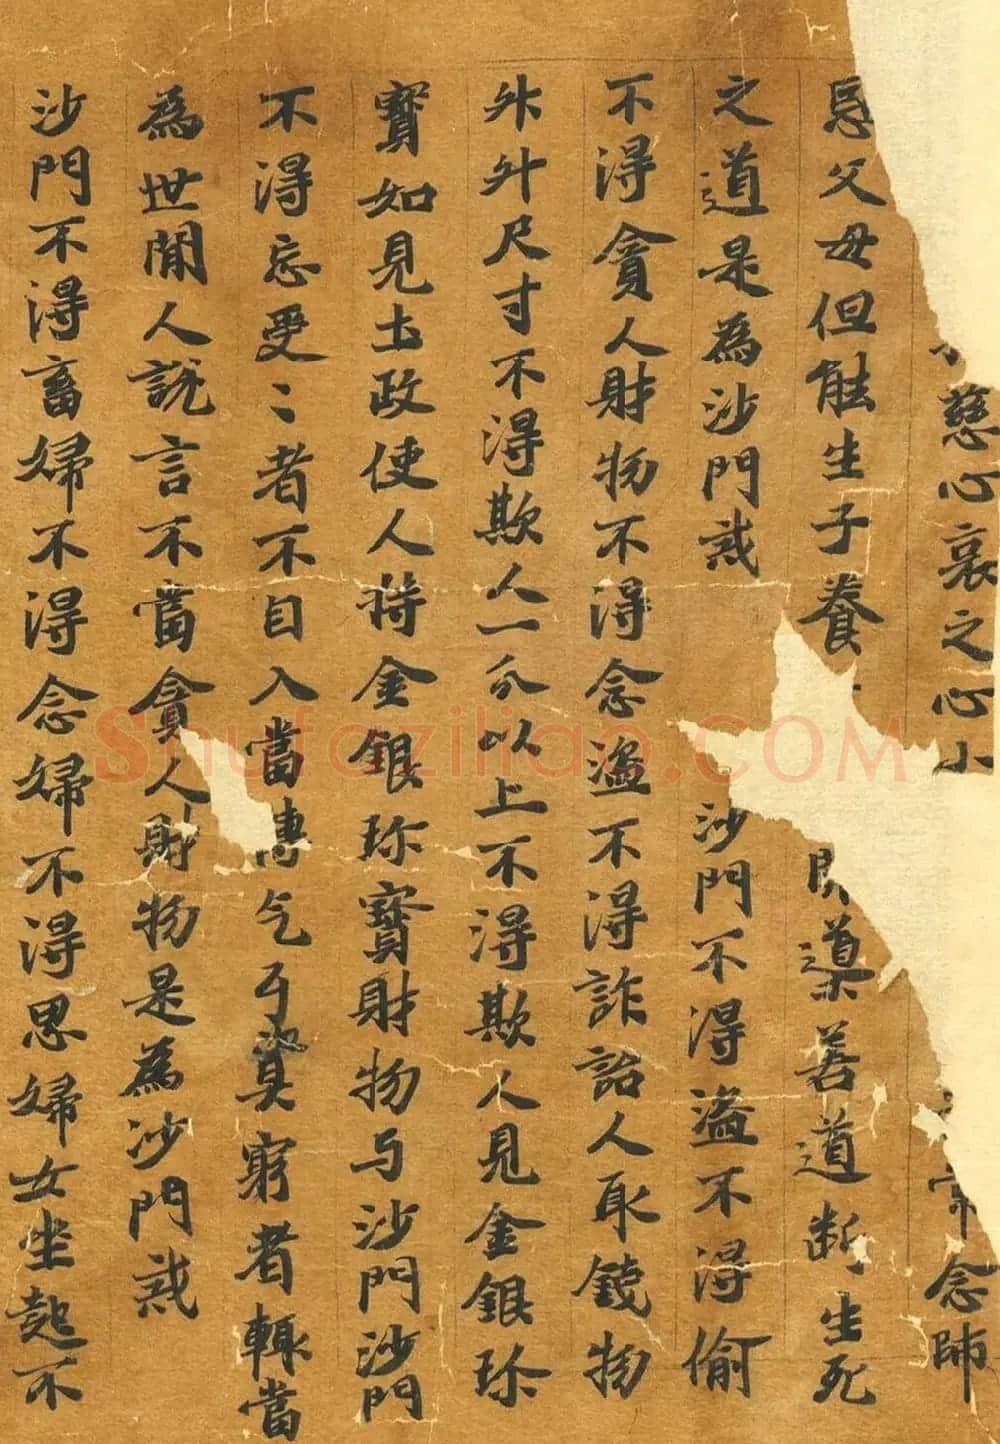 慈心哀之心小常念師
恩父母但能生子養開導善道断生死
之道是為沙門戒沙門不得盗不得偷
不得貪人財物不得念盗不得詐詒人取錢物
升升尺寸不得欺人一分以上不得欺人見金銀珎
寳如見土政使人持金銀珎寳財物与沙門沙門
不得忘受〻者不自入當博乞丐貧窮者輙當
為世間人說言不當貪人財物是為沙門戒
沙門不得畜婦不得念婦不得思婦女坐起不
Shufaziliao.COM